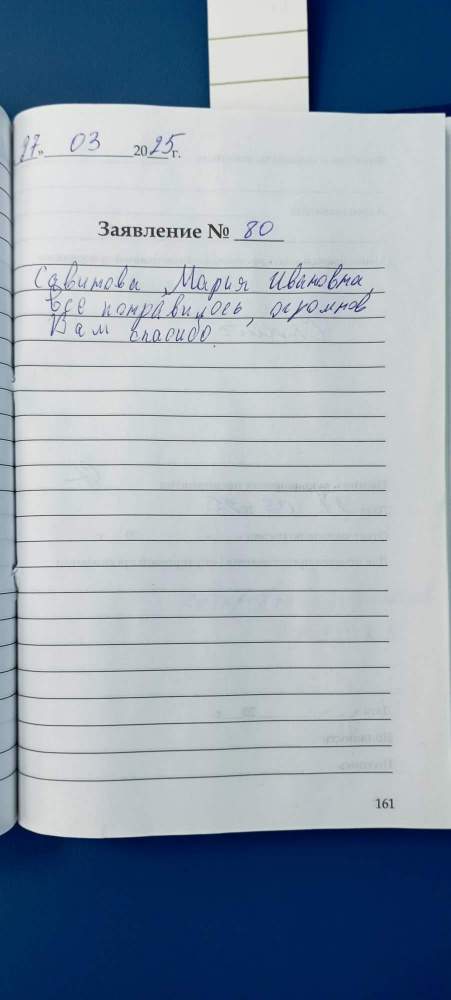 27" 03 2025 г.
Заявление № 80
Савиновы, Мария Ивановна,
все понравилось, огромнов
Вам спасибо.
161